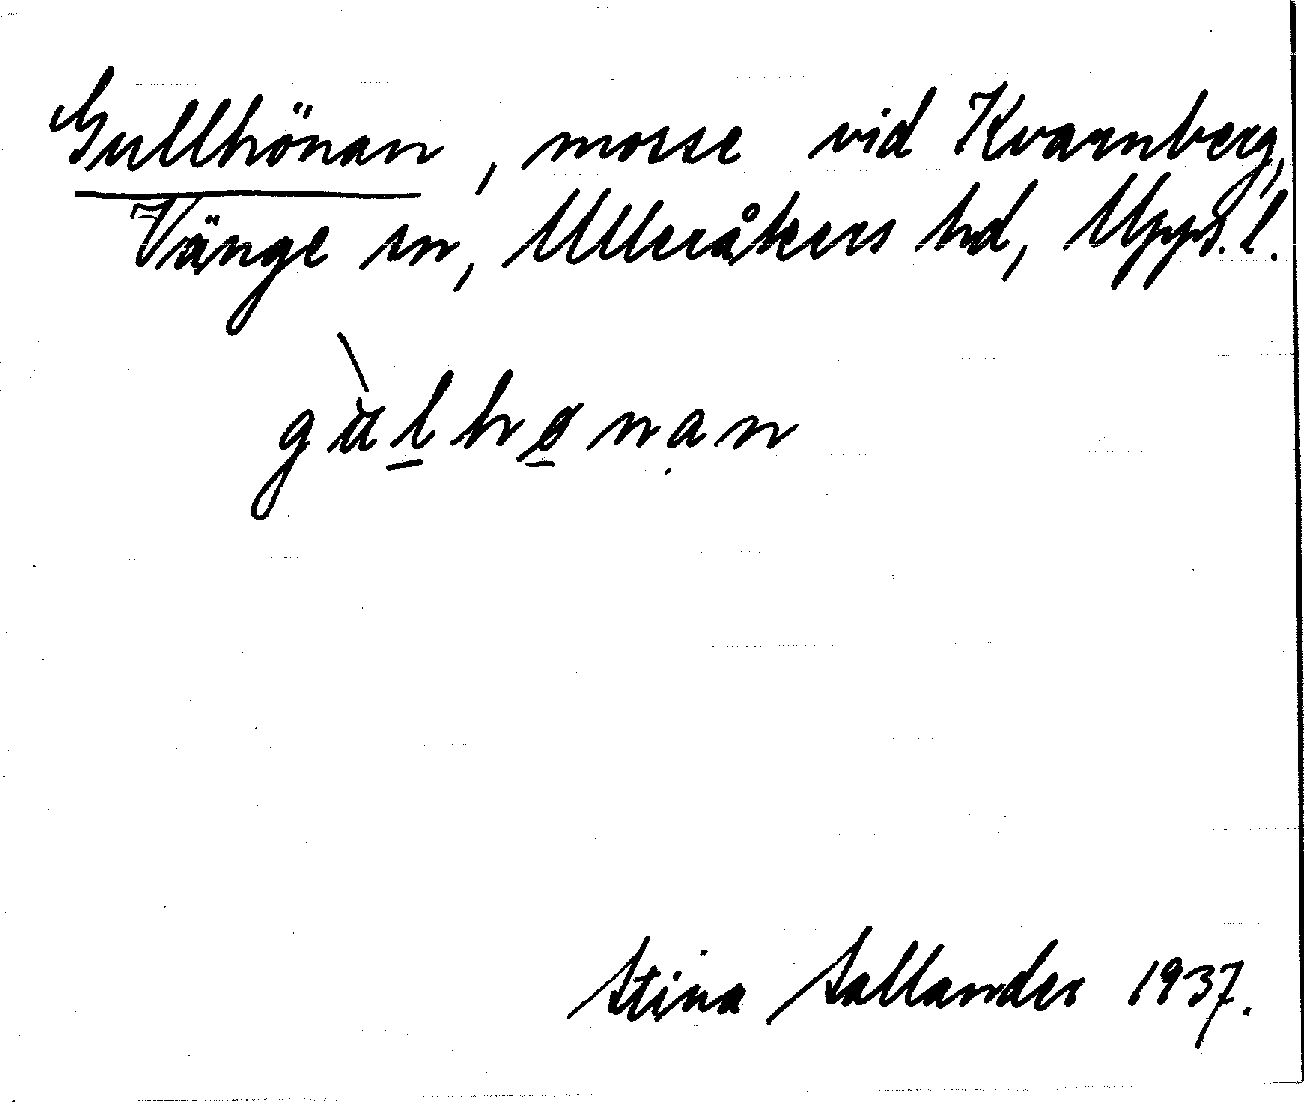 Gullhönan, mosse vid Kvarnberg,
Vänge sn, Ulleråkers hd, Uppl.
gùl̲hø̲nan
Stina Sallander 1937.